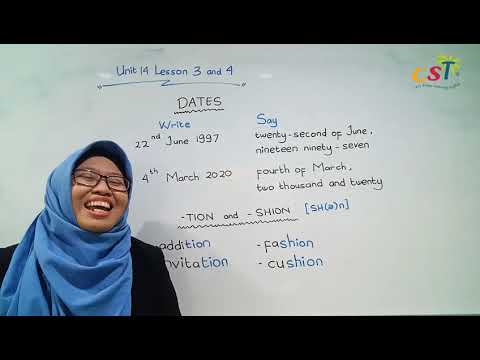 Unit 14 Lesson 3 and 4
CST
DATES
Write
Say
22nd June 1997
twenty-second of June,
nineteen ninety-seven
4th March 2020
fourth of March,
two thousand and twenty
-TION and -SHION [SH(ə)n]
addition
-fashion
nvitation
-cushion